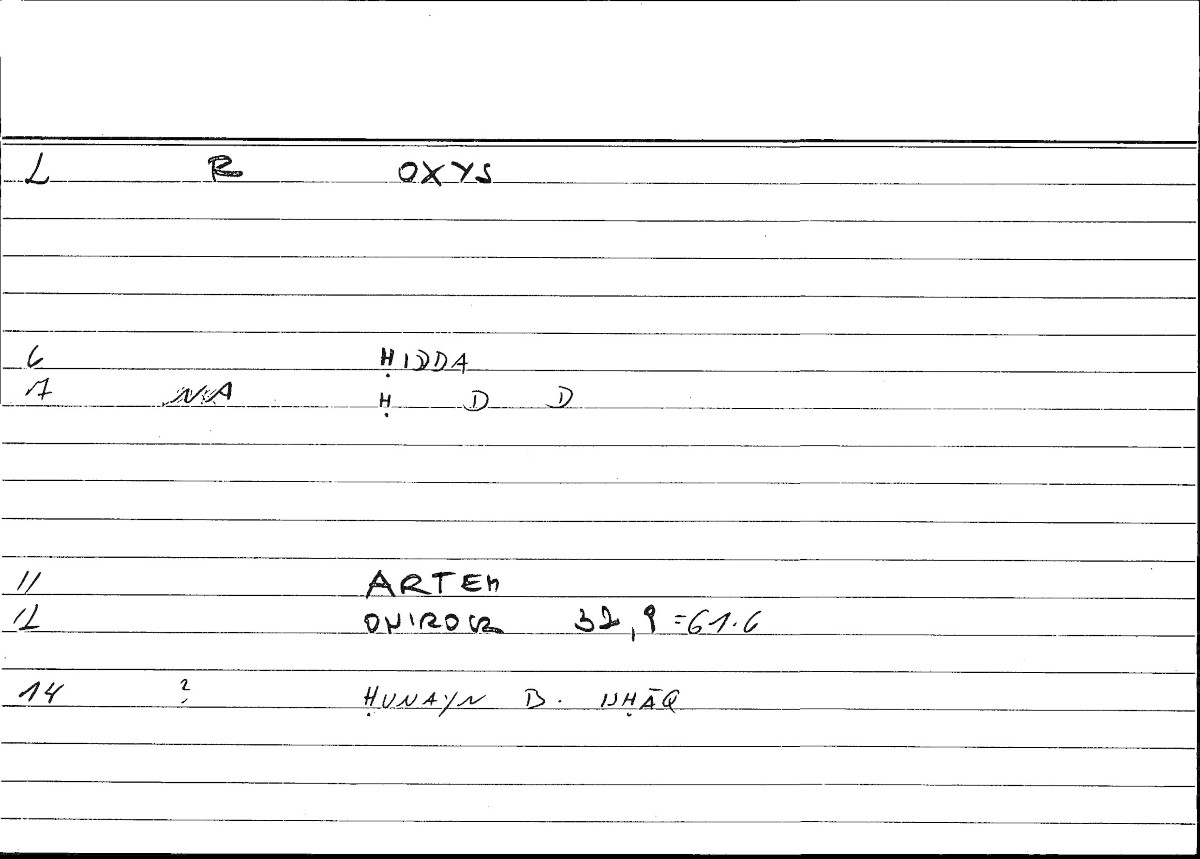 L R OXYS
6 ḤIDDA
7 NA Ḥ D D
11 ARTEM
12 ONIROCR 32,9 = 61.6
14 ? ḤUNAYN B. ISḤĀQ